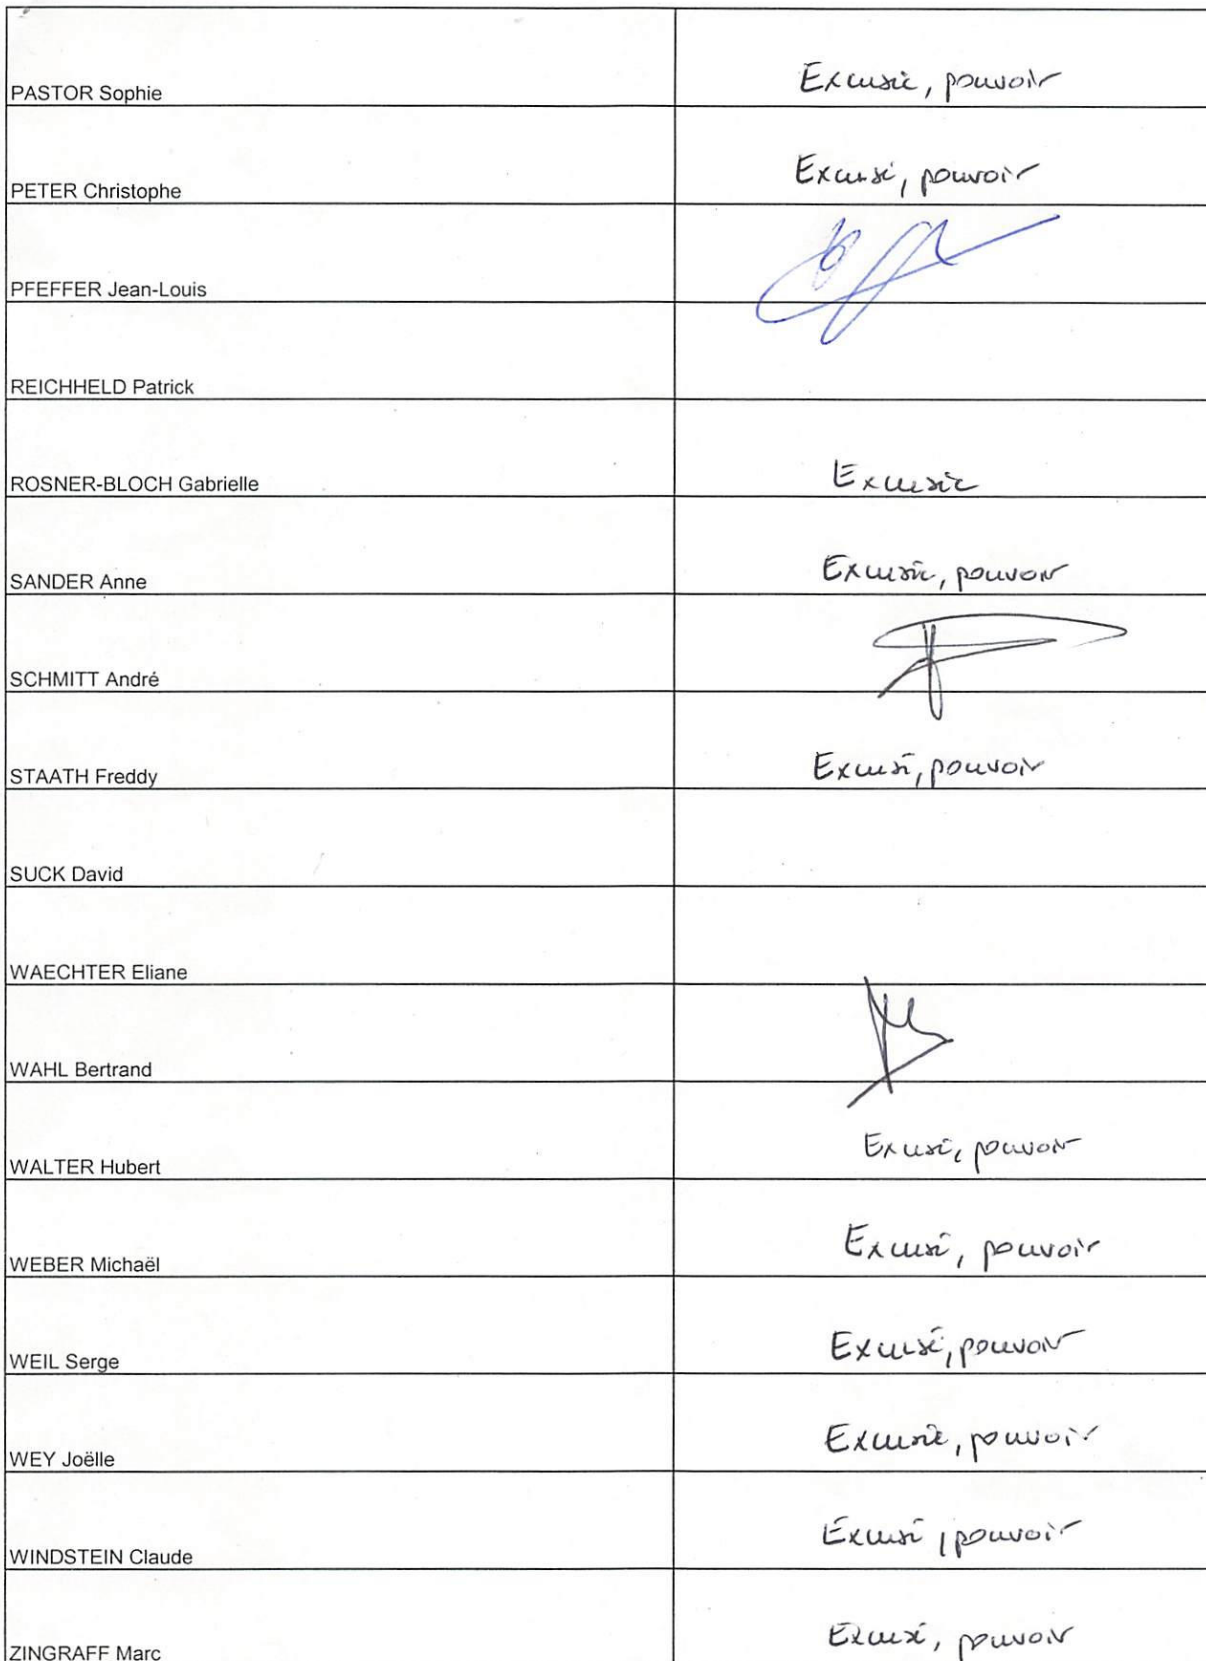 PASTOR Sophie Excusée, pouvoir
PETER Christophe Excusé, pouvoir
PFEFFER Jean-Louis
REICHHELD Patrick
ROSNER-BLOCH Gabrielle Excusée
SANDER Anne Excusée, pouvoir
SCHMITT André
STAATH Freddy Excusé, pouvoir
SUCK David
WAECHTER Eliane
WAHL Bertrand
WALTER Hubert Excusé, pouvoir
WEBER Michaël Excusé, pouvoir
WEIL Serge Excusé, pouvoir
WEY Joëlle Excusée, pouvoir
WINDSTEIN Claude Excusé, pouvoir
ZINGRAFF Marc Excusé, pouvoir